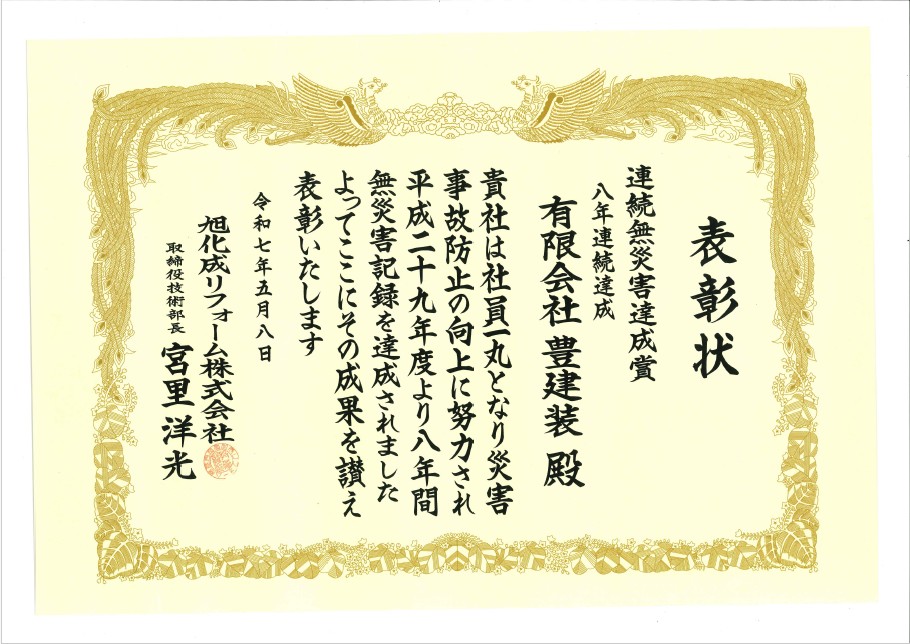 表彰状
連続無災害達成賞
八年連続達成
有限会社 豊建装 殿
貴社は社員一丸となり災害
事故防止の向上に努力され
平成二十九年度より八年間
無災害記録を達成されました
よってここにその成果を讃え
表彰いたします
令和七年五月八日
旭化成リフォーム株式会社
取締役技術部長 宮里洋光